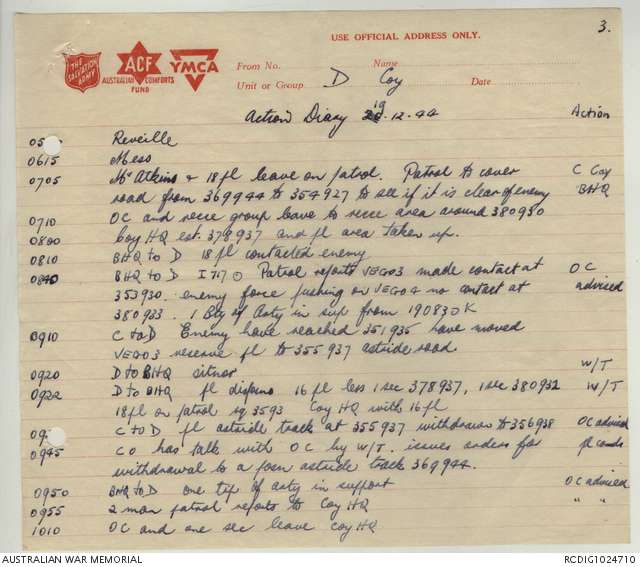 3.
USE OFFICIAL ADDRESS ONLY.
THE SALVATION ARMY
ACF
AUSTRALIAN COMFORTS FUND
YMCA
From No. Name
Unit or Group D Coy Date
Action Diary 19-12-44 Action
05 Reveille
0615 Mess
0705 Mr Atkins & 18 pl leave on patrol. Patrol to cover C Coy
road from 369944 to 354927 to see if it is clear of enemy BHQ
0710 OC and recce group leave to recce area around 380930
0800 Coy HQ est. 378937 and pl area taken up.
0810 BHQ to D 18 pl contacted enemy
0840 BHQ to D I 717 O Patrol reports VEGO3 made contact at OC
353930. enemy force pushing on VEGO4 no contact at advised
380933. 1 Bty of Arty in sup from 190830K
0910 C to D Enemy have reached 351935 have moved
VEGO3 reserve pl to 355937 astride road
0920 D to BHQ sitrep W/T
0922 D to BHQ pl dispns 16 pl less 1 sec 378937, 1 sec 380932 W/T
18 pl on patrol sq 3593 Coy HQ with 16 pl
09 C to D pl astride track at 355937 withdrawn to 356938 OC advised
0945 CO has talk with OC by W/T. issues orders for pl comds
withdrawal to a posn astride track 369944.
0950 BHQ to D one tp of arty in support OC advised
0955 2 man patrol reports to Coy HQ " "
1010 OC and one sec leave Coy HQ
AUSTRALIAN WAR MEMORIAL
RCDIG1024710